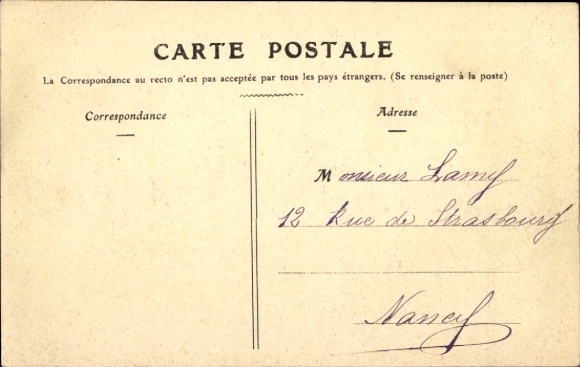 CARTE POSTALE
La Correspondance au recto n'est pas acceptée par tous les pays étrangers. (Se renseigner à la poste)
Correspondance
Adresse
Monsieur Lamy
12 Rue de Strasbourg
Nancy